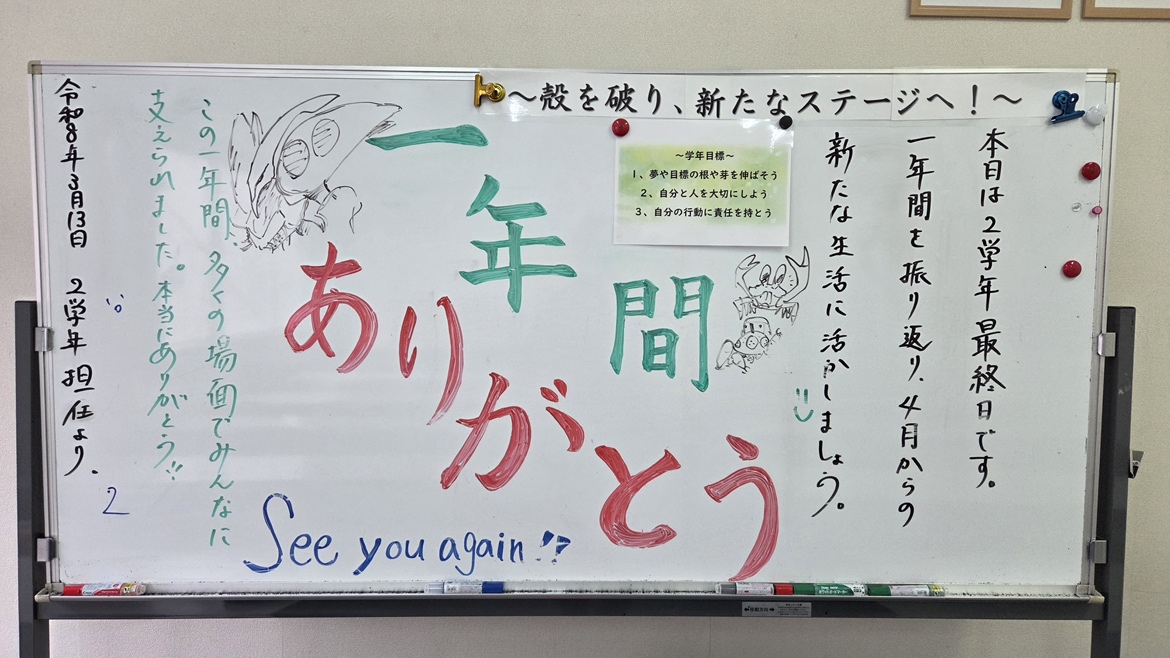 ～殻を破り、新たなステージへ！～
～学年目標～
１、夢や目標の根や芽を伸ばそう
２、自分と人を大切にしよう
３、自分の行動に責任を持とう
本日は2学年最終日です。
一年間を振り返り、4月からの
新たな生活に活かしましょう。
一年間
ありがとう
See you again!!
この一年間、多くの場面でみんなに
支えられました。本当にありがとう!!
令和8年3月13日 2学年担任より.
2